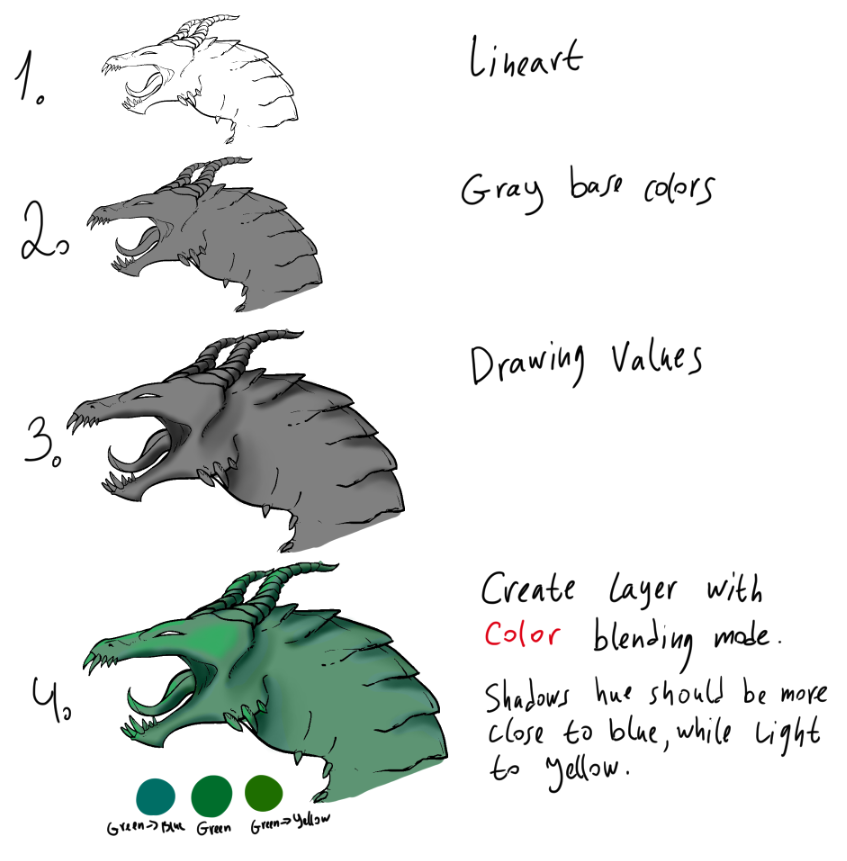 1.
Lineart
2.
Gray base colors
3.
Drawing Values
4.
Create Layer with
Color blending mode.
Shadows hue should be more
close to blue, while Light
to Yellow.
Green->Blue Green Green->Yellow